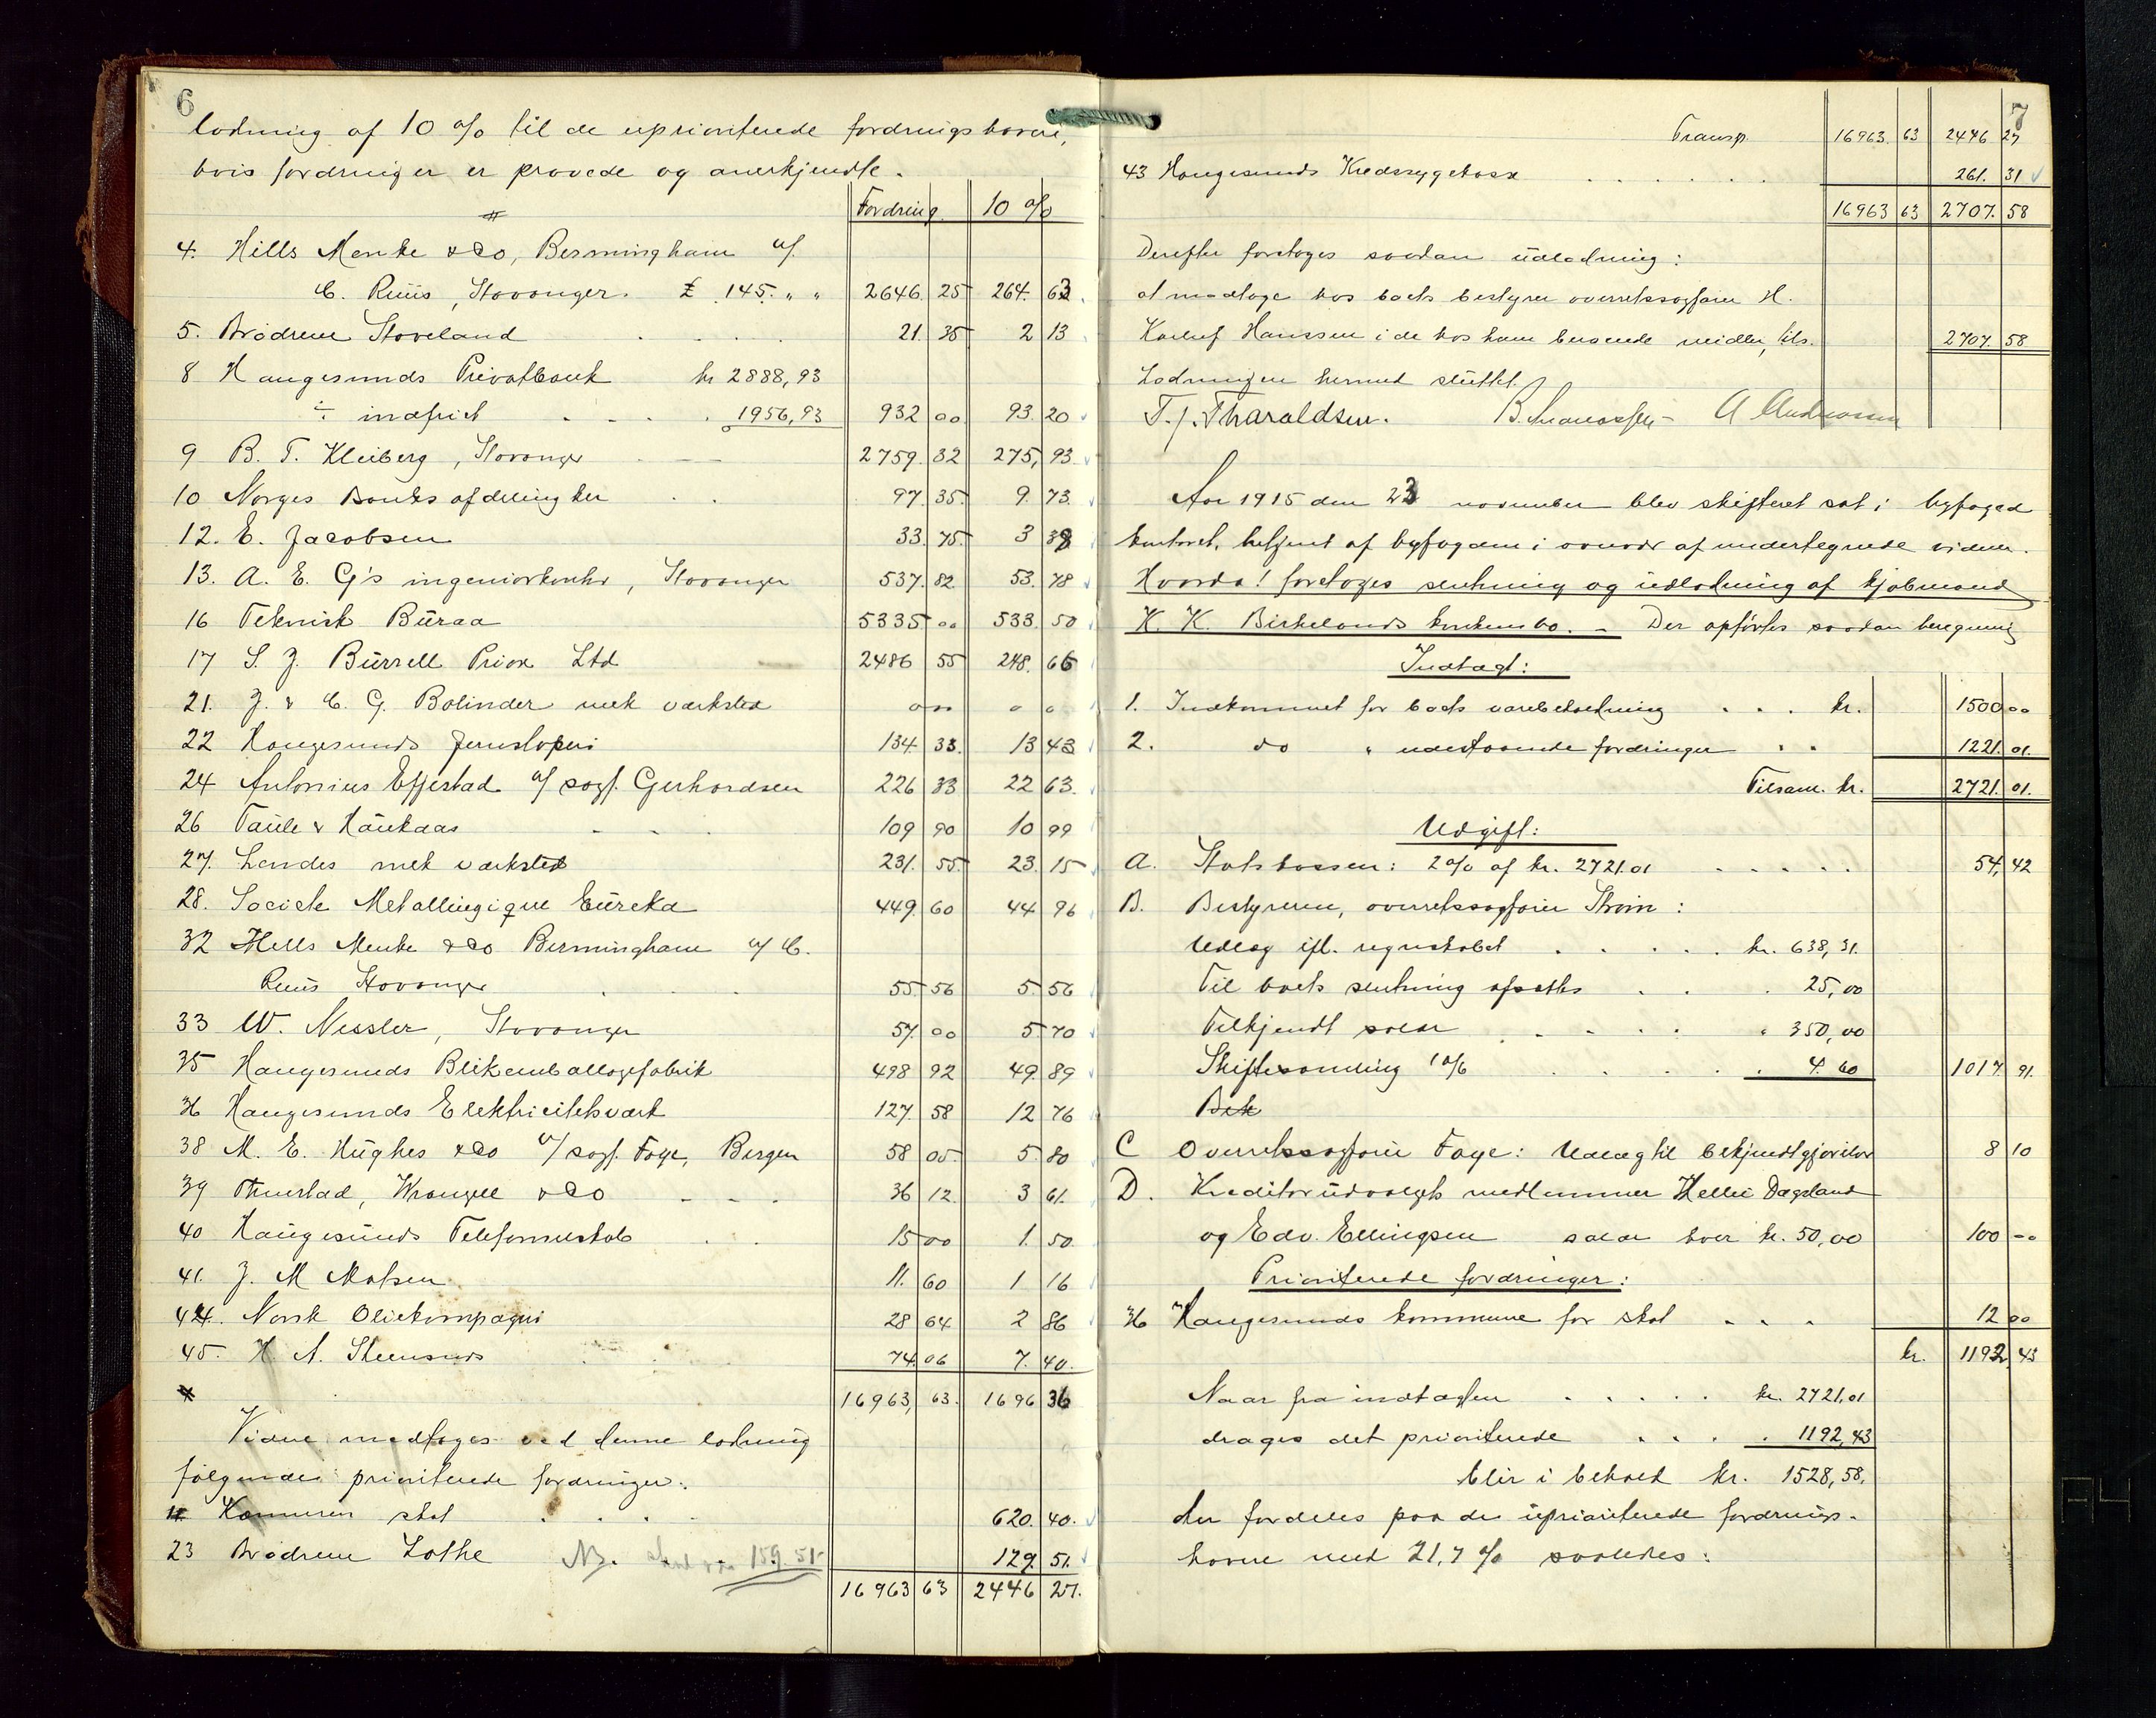 6
lodning af 10 % til de uprioriterede fordringshavere,
hvis fordringer er prøvede og anerkjendte.
Fordring 10 %
4. Hills Menke & Co, Bermingham v/
C. Ruus, Stavanger. £ 145 " " 2646. 25 264. 63.
5. Brødrene Stoveland . . . 21. 35 2 13
8 Haugesunds Privatbank kr 2888,93
÷ indfriet . . . . 1956,93 932 00 93. 20
9 B. T. Kleiberg, Stavanger 2759. 32 275, 93
10 Norges Banks afdeling her . . 97. 35 9. 73.
12. E. Jacobsen 33. 75 3 38
13. A. E. G's ingeniørkontor, Stavanger 537. 82 53. 78
16 Teknisk Büraa 5335 00 533. 50
17 S. J. Burrell Prior Ltd 2486 55 248. 65
21. J. & C. G. Bolinder mek værksted 0 00 0 0
22 Haugesunds Jernstøperi 134. 33. 13 43
24 Antonius Effestad v/ sagf. Gerhardsen 226 33 22 63.
26 Taule & Haukaas 109 90 10 99
27. Landes mek værksted 231. 55 23. 15
28. Societe Metallurgique Eüreka 449. 60 44 96
32 Hills Menke & Co Bermingham v/ C.
Ruus Stavanger . . 55 56 5 56
33 W. Nissler, Stavanger 57. 00 5 70
35 Haugesunds Blikemballagefabrik 498 92 49. 89
36 Haugesunds Elektricitetsværk 127. 58 12 76
38 M. E. Hughes & Co v/ sagf. Faye, Bergen 58 00 5. 80
39 Thunestad, Wrangell & Co . . . 36 12. 3 61.
40 Haugesunds Telefonselskab . . 15 00 1. 50.
41. J. M Matsen 11. 60 1 16
44. Norsk Oliekompagni 28 64 2 86
45. H A. Steensnes 74. 06 7. 40.
16963, 63. 1696 36
Videre medtages ved denne lodning
følgende prioriterede fordringer:
11 Kæmneren skat . . . . 620. 40.
23 Brødrene Lothe 159.51 129. 51.
16963 63 2446 27.
7
Transp 16963. 63 2446 27
43 Haugesunds Kredssygekasse . . . . . . 261. 31
16963 63 2707. 58
Derefter foretoges saadan udlodning:
at modtage hos boets bestyrer overretssagfører H.
Karluf Hanssen i de hos ham beroende midler, tils. 2707. 58
Lodningen hermed sluttet.
T. J. Tharaldsen. A Andreassen
Aar 1915 den 23 november blev skifteret sat i byfoged
kontoret, betjent af byfogden i overvær af undertegnede vidner.
Hvorda! foretoges slutning og udlodning af kjøbmand
K. K. Birkelands konkursbo. – Der opførtes saadan beregning
Indtægt:
1. Indkommet for boets varebeholdning . . . kr. 1500 00
2. do " udestaaende fordringer . . 1221. 01.
Tilsam. kr. 2721. 01.
Udgift:
A. Statskassen: 2 % af kr. 2721.01 . . . . . 54, 42
B. Bestyreren, overretssagfører Strøm:
Udlæg ifl. regnskabet . . . . . kr. 638, 31.
Til boets slutning afsættes . . . 25, 00
Tilkjendt salær . . . . " 350, 00
Skiftesamling 1 % . . . . . 4. 60 1017. 91.
Bek
C Overretssagfører Faye: Udlæg til bekjendtgjørelser 8 10
D. Kreditorudvalgets medlemmer Helle Dagsland
og Edv. Ellingsen salær hver kr. 50,00 100 00
Prioriterede fordringer:
36 Haugesunds kommune for skat . . . 12 00
kr. 1192 43
Naar fra indtægten . . . . . kr. 2721,01
drages det prioriterede . . . . 1192,43
blir i behold kr. 1528,58,
der fordeles paa de uprioriterede fordrings-
havere med 21,7 % saaledes: